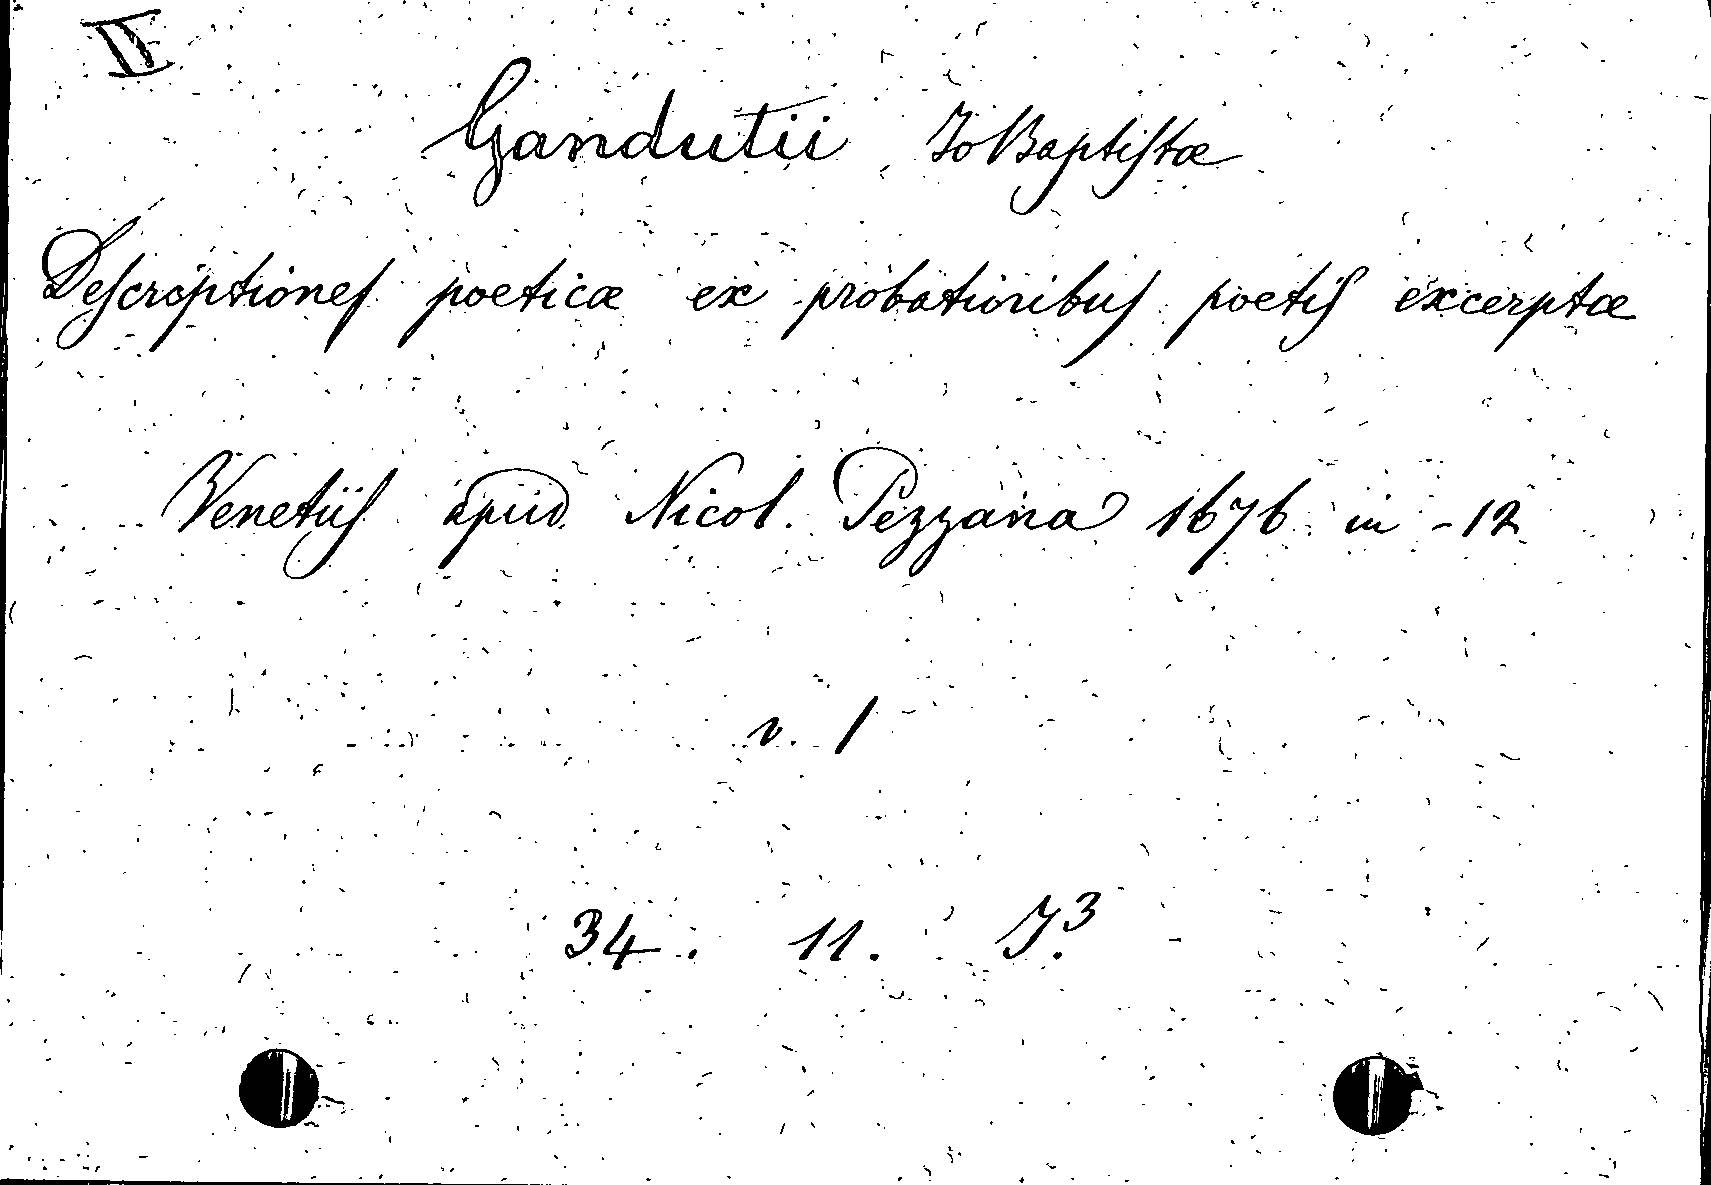 IV
Gandutii Jo Baptistæ
Descriptiones poeticæ ex probatioribus poetis excerptæ
Venetiis apud Nicol. Pezzana 1676 in -12
v. 1
34. 11. J.³